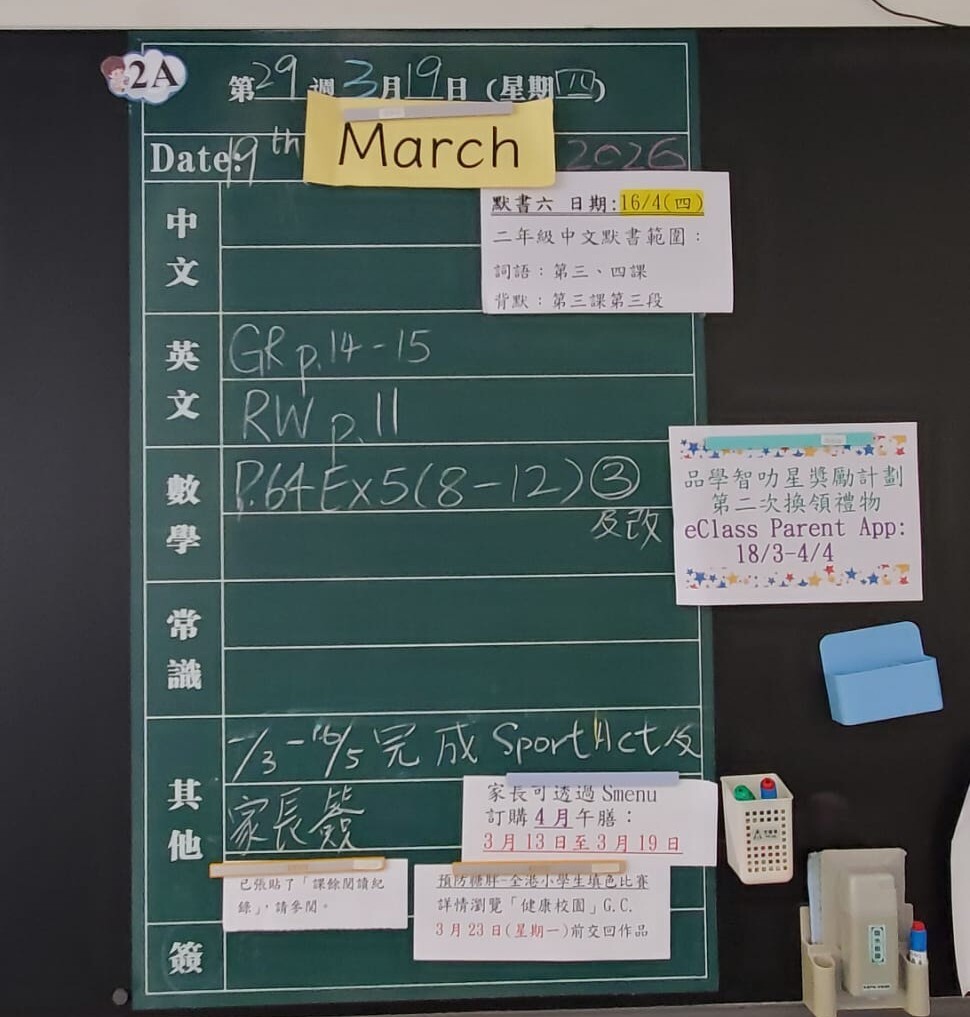 2A
第29週 3月19日 (星期四)
Date: 19th March 2026
中文
默書六 日期:16/4(四)
二年級中文默書範圍：
詞語：第三、四課
背默：第三課第三段
英文
GR p.14-15
RW p.11
數學
P.64 Ex5(8-12)③
及改
品學智叻星獎勵計劃
第二次換領禮物
eClass Parent App:
18/3-4/4
常識
其他
完成 Sport Act 及
家長簽
家長可透過 Smenu
訂購 4 月午膳：
3 月 13 日至 3 月 19 日
已張貼了「課餘閱讀紀
錄」，請參閱。
預防糖胖-全港小學生填色比賽
詳情瀏覽「健康校園」G.C.
3 月 23 日(星期一)前交回作品
簽